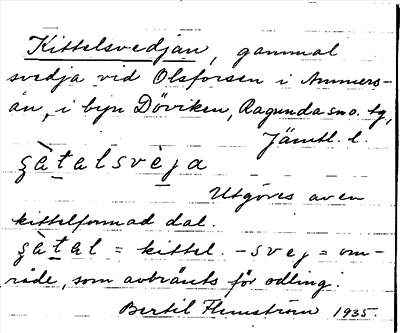 Kittelsvedjan, gammal
svedja vid Olsforsen i Ammers-
ån, i byn Döviken, Ragunda sn o. tg,
Jämtl. l.
ʒàtalsvèja
Utgöres av en
kittelformad dal.
ʒàtal = kittel. -svej = om-
råde, som avbränts för odling.
Bertil Flemström 1935.